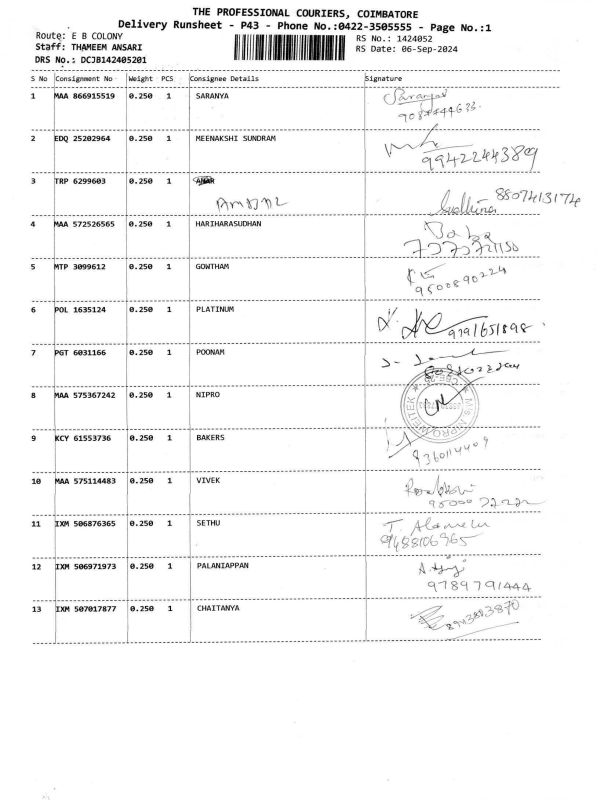 THE PROFESSIONAL COURIERS, COIMBATORE
Delivery Runsheet - P43 - Phone No.:0422-3505555 - Page No.:1
Route: E B COLONY
RS No.: 1424052
Staff: THAMEEM ANSARI
RS Date: 06-Sep-2024
DRS No.: DCJB142405201
S No Consignment No Weight PCS Consignee Details Signature
1 MAA 866915519 0.250 1 SARANYA Saranya
2 EDQ 25202964 0.250 1 MEENAKSHI SUNDRAM
9942244389
3 TRP 6299603 0.250 1
8807413174
4 MAA 572526565 0.250 1 HARIHARASUDHAN Baba
5 MTP 3099612 0.250 1 GOWTHAM
9500890224
6 POL 1635124 0.250 1 PLATINUM
9791651898
7 PGT 6031166 0.250 1 POONAM
8 MAA 575367242 0.250 1 NIPRO
9 KCY 61553736 0.250 1 BAKERS
9360114409
10 MAA 575114483 0.250 1 VIVEK
11 IXM 506876365 0.250 1 SETHU T. Alamelu
9488106965
12 IXM 506971973 0.250 1 PALANIAPPAN
9789791444
13 IXM 507017877 0.250 1 CHAITANYA